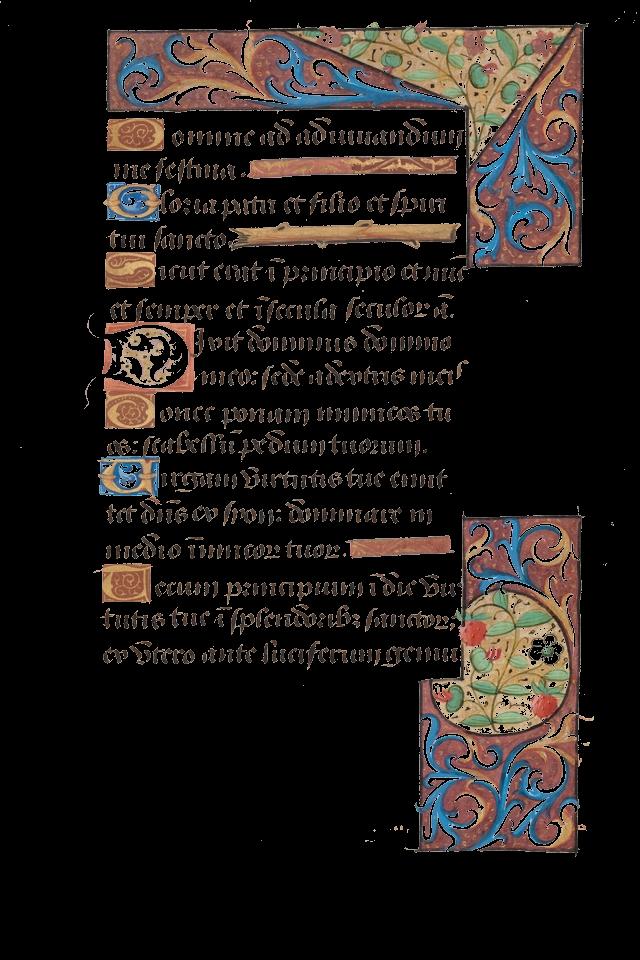 Domine ad adiuuandum
me festina.
Gloria patri et filio et spiri
tui sancto
Sicut erat i principio et nuc
et semper et i secula seculor a.
Dixit dominus domino
meo: sede a dextris meis
Donec ponam inimicos tu
os: scabellu pedum tuorum.
Uirgam virtutis tue emit
tet dns ex syon: dominare in
medio inimicor tuor.
Tecum principium i die vir
tutis tue i splendorib sanctor:
ex vtero ante luciferum genui